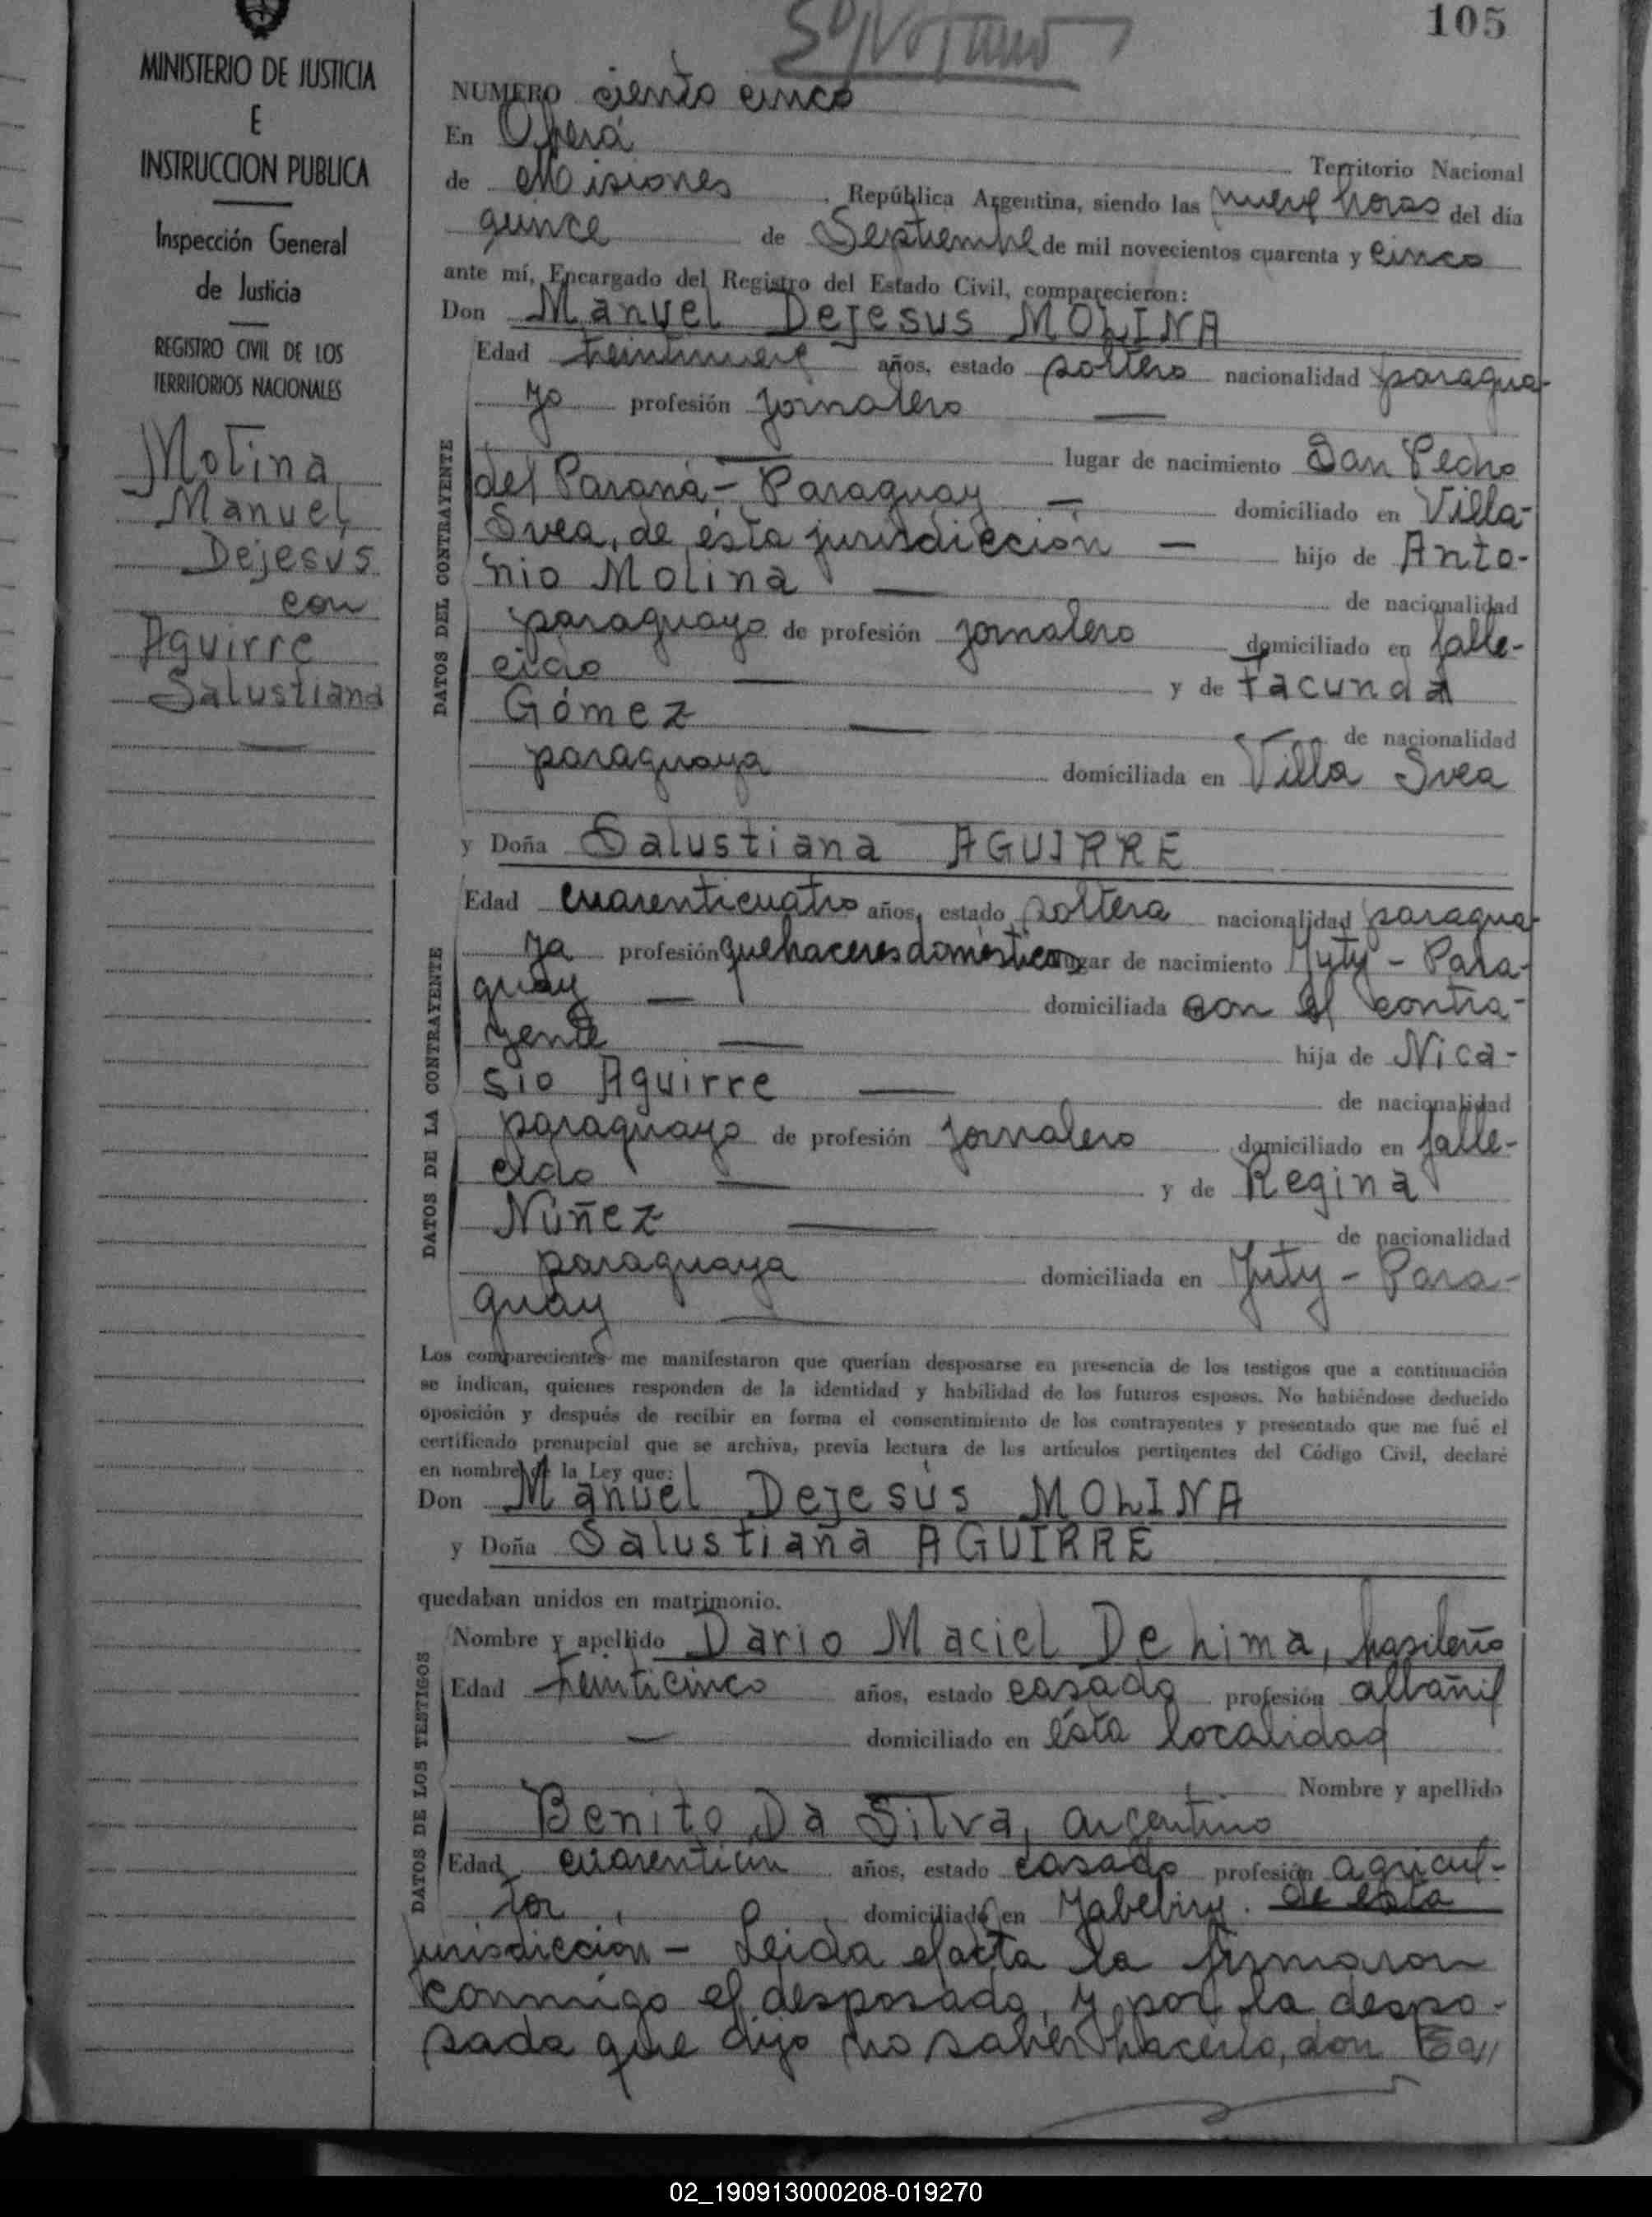 105
MINISTERIO DE JUSTICIA
E
INSTRUCCION PUBLICA
Inspección General
de Justicia
REGISTRO CIVIL DE LOS
TERRITORIOS NACIONALES
Molina
Manuel
Dejesus
con
Aguirre
Salustiana
NUMERO ciento cinco
En Oberá Territorio Nacional
de Misiones República Argentina, siendo las nueve horas del día
quince de Septiembre de mil novecientos cuarenta y cinco
ante mí, Encargado del Registro del Estado Civil, comparecieron:
Don Manuel Dejesus MOLINA
DATOS DEL CONTRAYENTE
Edad treintinueve años, estado soltero nacionalidad paragua-
yo profesión jornalero
lugar de nacimiento San Pedro
del Paraná - Paraguay domiciliado en Villa-
Svea, de ésta jurisdicción hijo de Anto-
nio Molina de nacionalidad
paraguayo de profesión jornalero domiciliado en falle-
cido y de Facunda
Gómez de nacionalidad
paraguaya domiciliada en Villa Svea
y Doña Salustiana AGUIRRE
DATOS DE LA CONTRAYENTE
Edad cuarenticuatro años, estado soltera nacionalidad paragua-
ya profesión quehaceres domésticos lugar de nacimiento Yuty - Para-
guay domiciliada con el contra-
yente hija de Nica-
sio Aguirre de nacionalidad
paraguayo de profesión jornalero domiciliado en falle-
cido y de Regina
Núñez de nacionalidad
paraguaya domiciliada en Yuty - Para-
guay
Los comparecientes me manifestaron que querían desposarse en presencia de los testigos que a continuación
se indican, quienes responden de la identidad y habilidad de los futuros esposos. No habiéndose deducido
oposición y después de recibir en forma el consentimiento de los contrayentes y presentado que me fué el
certificado prenupcial que se archiva, previa lectura de los artículos pertinentes del Código Civil, declaré
en nombre de la Ley que:
Don Manuel Dejesús MOLINA
y Doña Salustiana AGUIRRE
quedaban unidos en matrimonio.
DATOS DE LOS TESTIGOS
Nombre y apellido Dario Maciel De Lima, brasileño
Edad treinticinco años, estado casado profesión albañil
domiciliado en ésta localidad
Nombre y apellido
Benito Da Silva, argentino
Edad cuarentiun años, estado casado profesión agricul-
tor domiciliado en Yabebiry. de esta
jurisdicción - Leida el acta la firmaron
conmigo el desposado, y por la despo-
sada que dijo no saber hacerlo, don
02_190913000208-019270